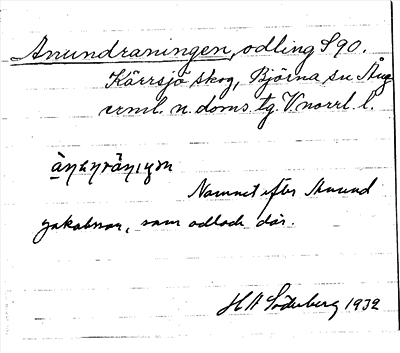 Anundraningen, odling S 90.
Kärrsjö skog, Björna sn Ång
erml. n. doms. tg. V norrl. l.
Namnet efter Anund
Jakobsson, som odlade där.
H W Söderberg 1932